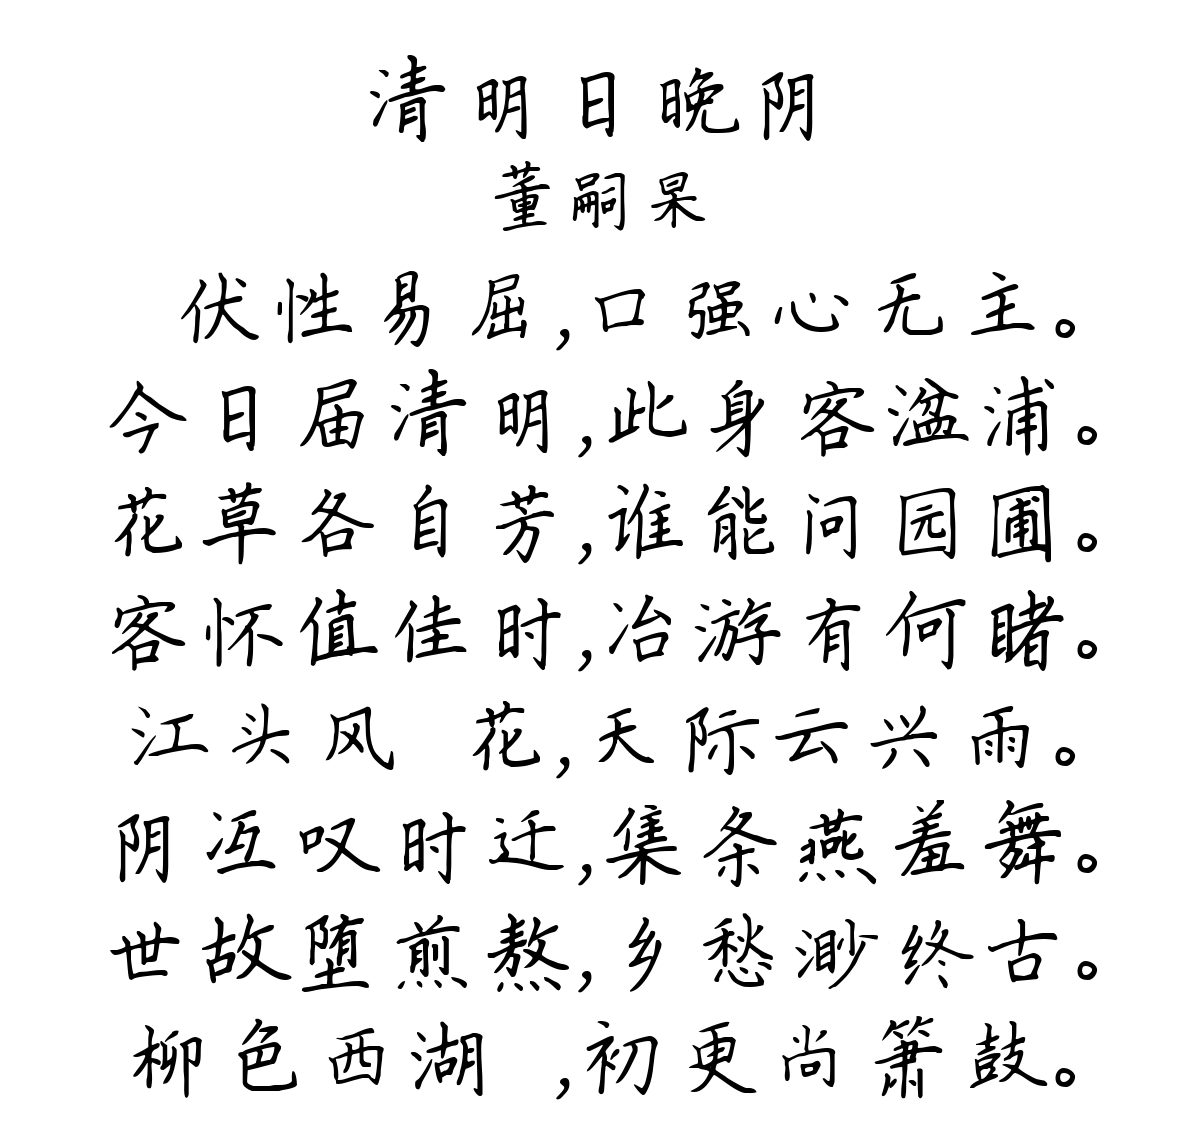 清明日晚阴
董嗣杲
伏性易屈,口强心无主。
今日届清明,此身客湓浦。
花草各自芳,谁能问园圃。
客怀值佳时,冶游有何睹。
江头风 花,天际云兴雨。
阴冱叹时迁,集条燕羞舞。
世故堕煎熬,乡愁渺终古。
柳色西湖 ,初更尚箫鼓。